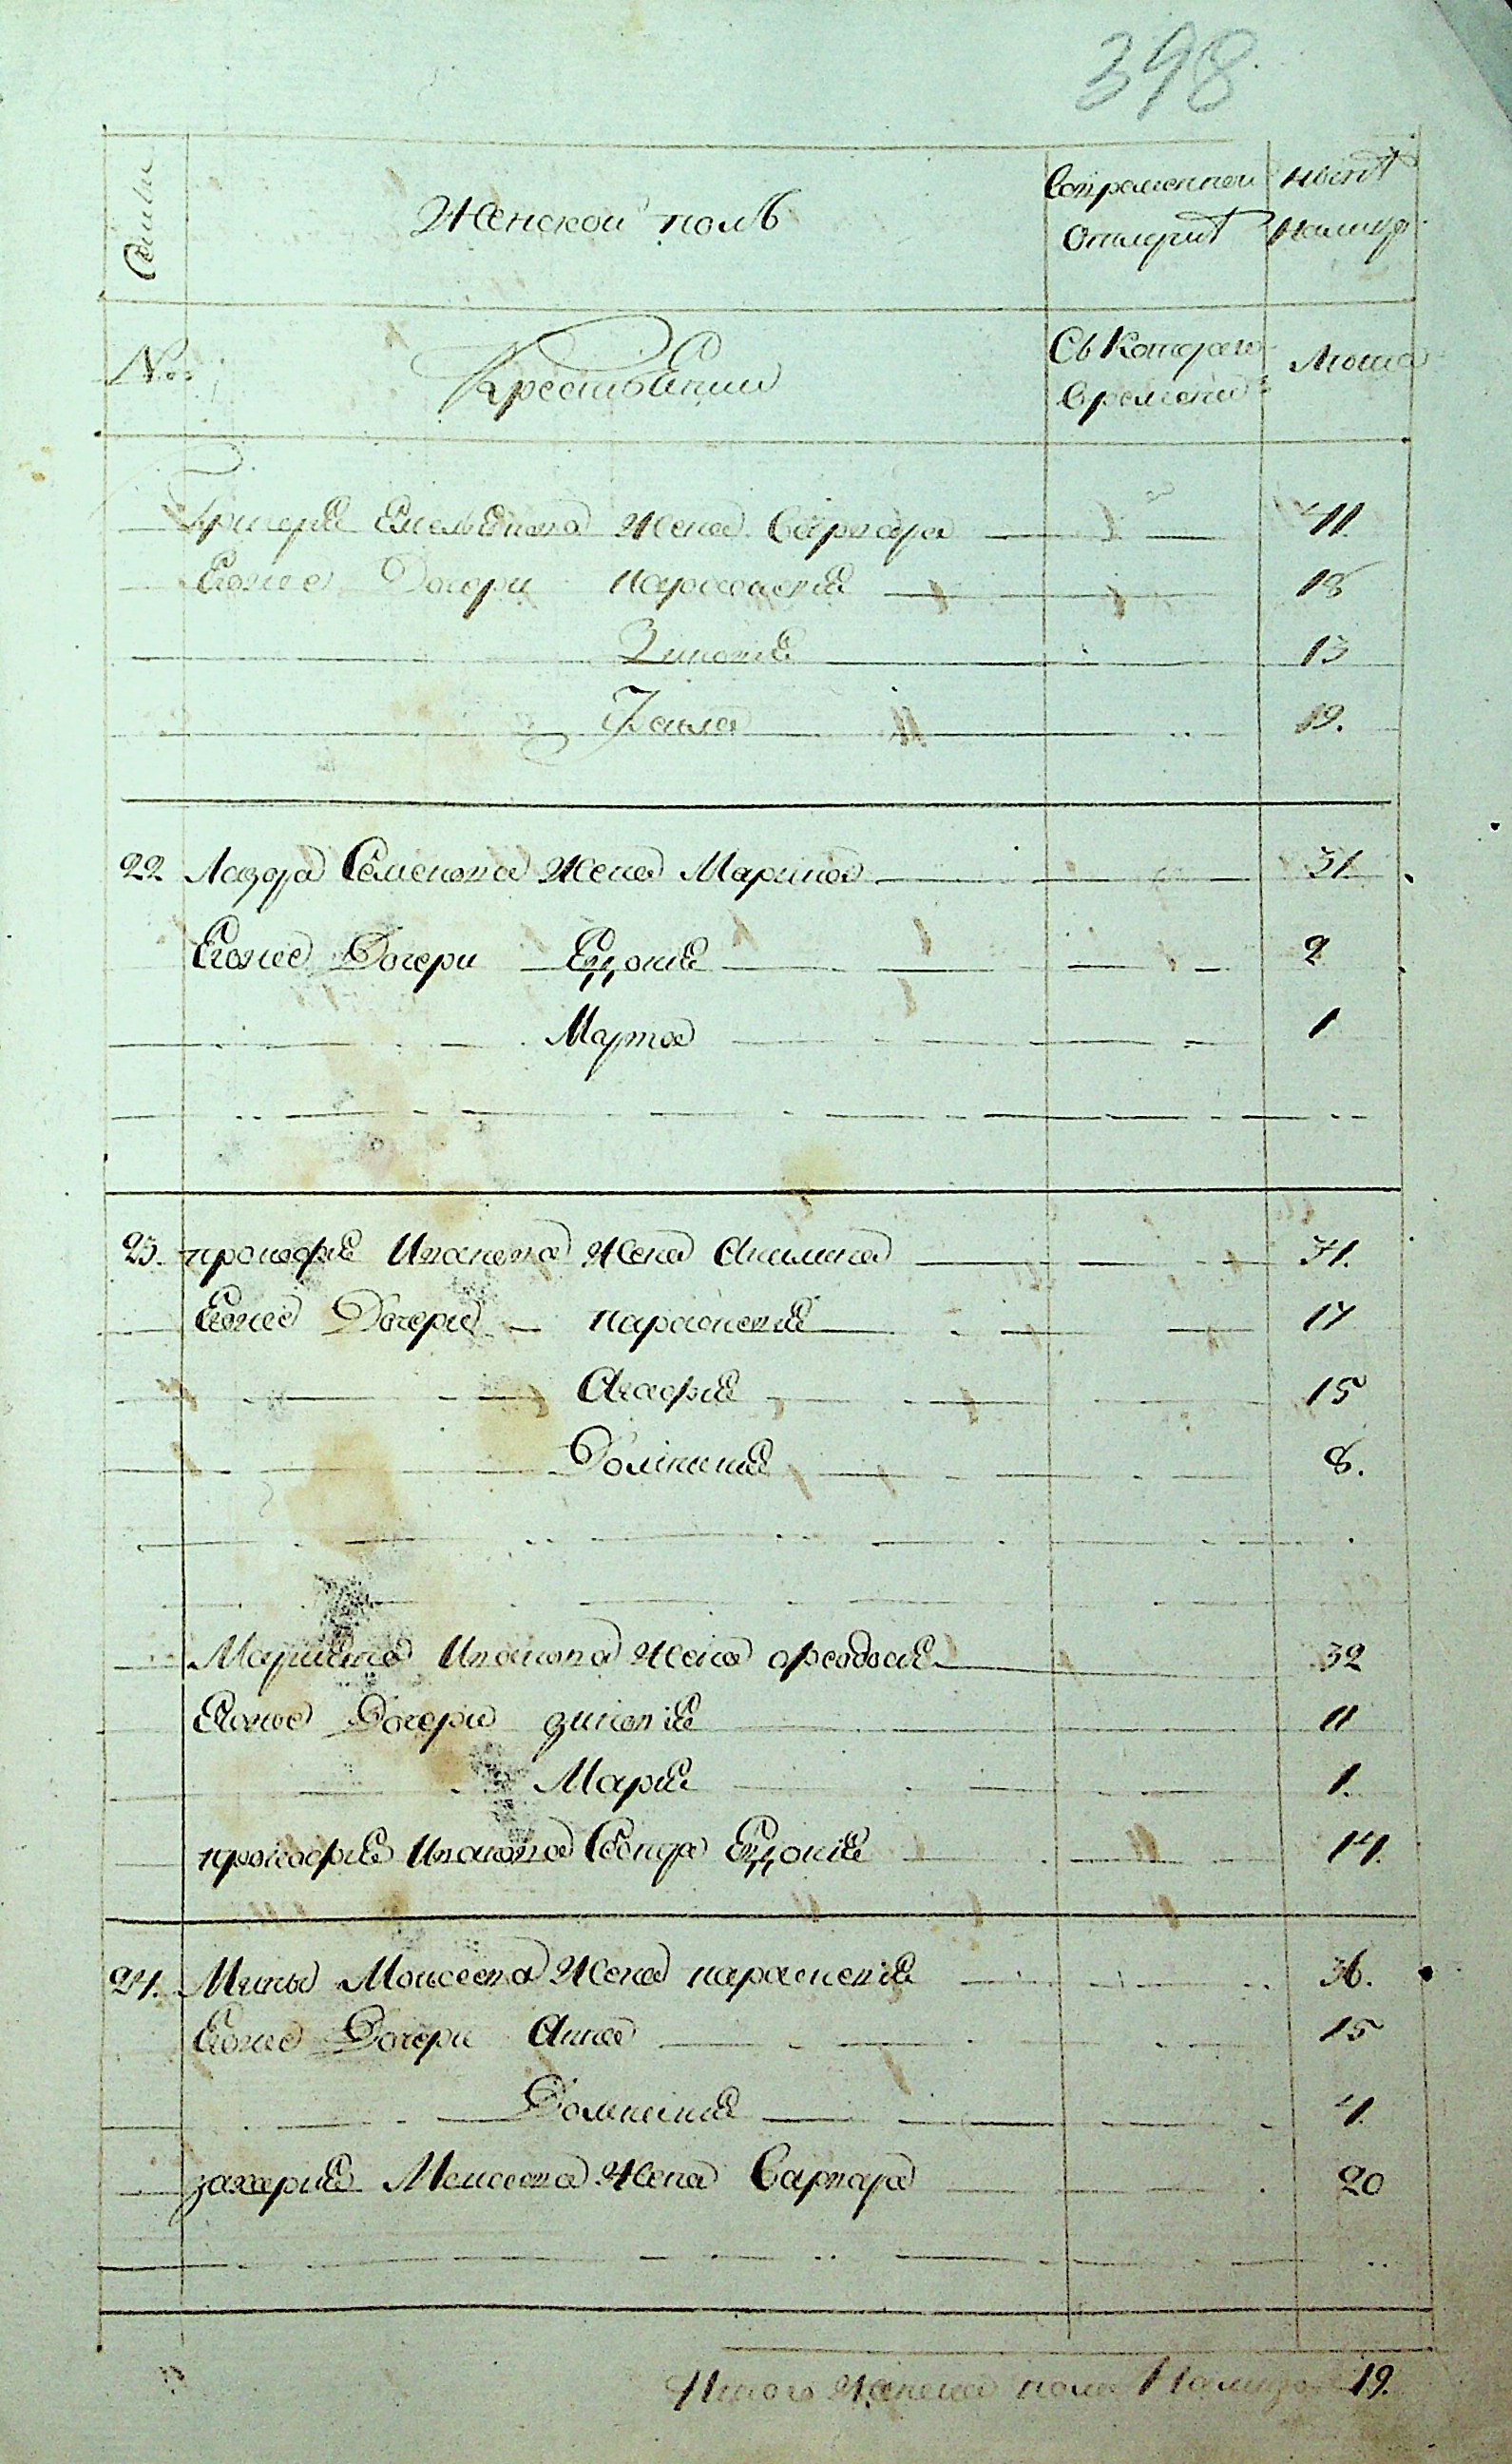 398
Семьи Женской полъ Вовременной отлучкѣ Нынѣ на лицо
№ Крестьянии Съ Которого времени Лѣта
Григорія Емельянова Жена Варвара 41.
Егоже Дочери параскевия 18
Зиновия 13
Фекла 12.
22 Лазара Семенова Жена Марина 31
Егоже Дочери Евдокия 2
Марфа 1
23. прокофия Иванова Жена Акилина 41.
Егоже Дочери параскевия 17
Агафия 15
Домникия 8.
Мартина Иванова Жена феодосия 32
Егоже Дочери зиновия 11
Мария 1.
прокофия Иванова Сестра Евдокия 14.
24. Мины Моисеева Жена параскевия 36.
Егоже Дочери Анна 15
Домникия 4.
захария Моисеева Жена Варвара 20
Итого Женска пола На лицо 19.